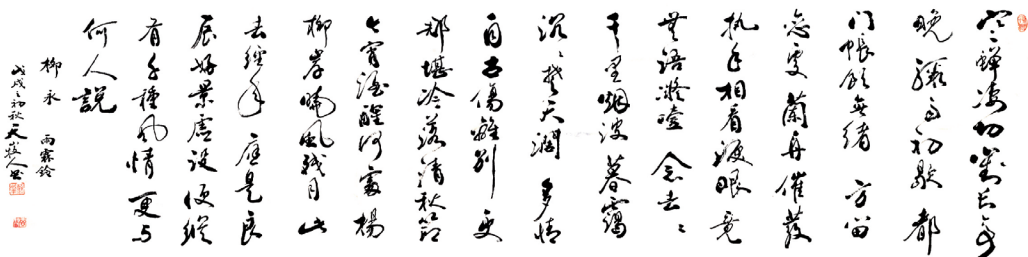 寒蝉凄切 對长亭
晚 骤雨初歇 都
门帐飲無绪 方留
恋处 蘭舟催發
执手相看淚眼 竟
無語凝噎 念去々
千里烟波 暮靄
沉々楚天阔 多情
自古傷離别 更
那堪冷落清秋節
今宵酒醒何處 楊
柳岸曉風残月 此
去經年 應是良
辰好景虚设 便縱
有千種風情 更与
何人説
柳永 雨霖鈴
戊戌之初秋天人書